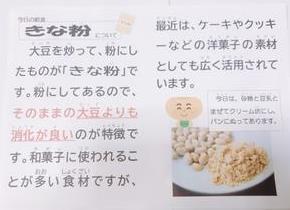 今日の給食
きな粉について
大豆を炒って、粉にし
たものが「きな粉」で
す。粉にしてあるので、
そのままの大豆よりも
消化が良いのが特徴で
す。和菓子に使われるこ
とが多い食材ですが、
最近は、ケーキやクッキ
ーなどの洋菓子の素材
としても広く活用されて
います。
今日は、砂糖と豆乳と
まぜてクリーム状にし、
パンにぬってあります。